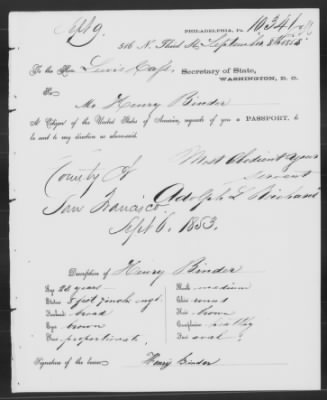 Sept 9.
PHILADELPHIA, PA. 10341
516 N. Third St. September
To the Hon. Lewis Cass,
Secretary of State,
WASHINGTON, D. C.
Sir
Mr Henry Binder
A Citizen of the United States of America, requests of you a PASSPORT, to
be sent to my direction as aforesaid.
Most Obedient
servant
County of
Adolph L
San Francisco.
Sept 6. 1853.
Description of Henry Binder
Age 26 years
Mouth medium
Stature 5 feet 7 inch
Chin round
Forehead broad
Hair brown
Eyes brown
Complexion healthy
Nose proportionate
Face oval
Signature of the bearer Henry Binder